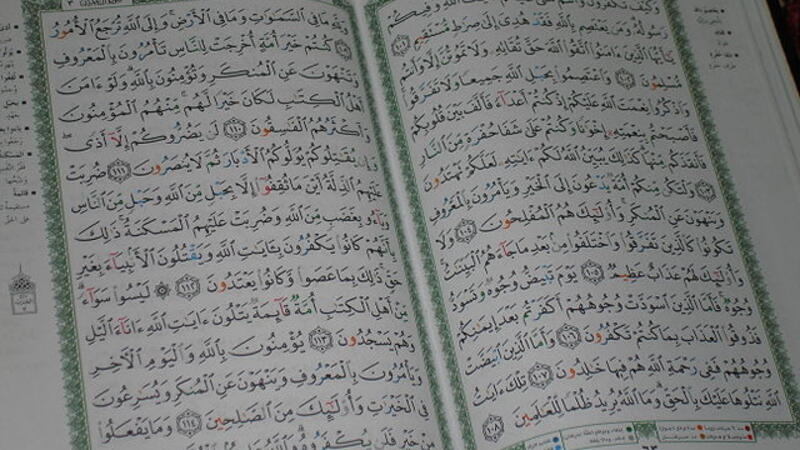 وَكَيْفَ تَكْفُرُونَ وَفِيكُمْ
رَسُولُهُۥ وَمَن يَعْتَصِم بِٱللَّهِ فَقَدْ هُدِىَ إِلَىٰ صِرَٰطٍ مُّسْتَقِيمٍ ١٠١
يَٰٓأَيُّهَا ٱلَّذِينَ ءَامَنُوا۟ ٱتَّقُوا۟ ٱللَّهَ حَقَّ تُقَاتِهِۦ وَلَا تَمُوتُنَّ إِلَّا وَأَنتُم
مُّسْلِمُونَ ١٠٢ وَٱعْتَصِمُوا۟ بِحَبْلِ ٱللَّهِ جَمِيعًا وَلَا تَفَرَّقُوا۟
وَٱذْكُرُوا۟ نِعْمَتَ ٱللَّهِ عَلَيْكُمْ إِذْ كُنتُمْ أَعْدَآءً فَأَلَّفَ بَيْنَ قُلُوبِكُمْ
فَأَصْبَحْتُم بِنِعْمَتِهِۦٓ إِخْوَٰنًا وَكُنتُمْ عَلَىٰ شَفَا حُفْرَةٍ مِّنَ ٱلنَّارِ
فَأَنقَذَكُم مِّنْهَا كَذَٰلِكَ يُبَيِّنُ ٱللَّهُ لَكُمْ ءَايَٰتِهِۦ لَعَلَّكُمْ تَهْتَدُونَ
١٠٣ وَلْتَكُن مِّنكُمْ أُمَّةٌ يَدْعُونَ إِلَى ٱلْخَيْرِ وَيَأْمُرُونَ بِٱلْمَعْرُوفِ
وَيَنْهَوْنَ عَنِ ٱلْمُنكَرِ وَأُو۟لَٰٓئِكَ هُمُ ٱلْمُفْلِحُونَ ١٠٤ وَلَا
تَكُونُوا۟ كَٱلَّذِينَ تَفَرَّقُوا۟ وَٱخْتَلَفُوا۟ مِنۢ بَعْدِ مَا جَآءَهُمُ ٱلْبَيِّنَٰتُ
وَأُو۟لَٰٓئِكَ لَهُمْ عَذَابٌ عَظِيمٌ ١٠٥ يَوْمَ تَبْيَضُّ وُجُوهٌ وَتَسْوَدُّ
وُجُوهٌ فَأَمَّا ٱلَّذِينَ ٱسْوَدَّتْ وُجُوهُهُمْ أَكَفَرْتُم بَعْدَ إِيمَٰنِكُمْ
فَذُوقُوا۟ ٱلْعَذَابَ بِمَا كُنتُمْ تَكْفُرُونَ ١٠٦ وَأَمَّا ٱلَّذِينَ ٱبْيَضَّتْ
وُجُوهُهُمْ فَفِى رَحْمَةِ ٱللَّهِ هُمْ فِيهَا خَٰلِدُونَ ١٠٧ تِلْكَ ءَايَٰتُ
ٱللَّهِ نَتْلُوهَا عَلَيْكَ بِٱلْحَقِّ وَمَا ٱللَّهُ يُرِيدُ ظُلْمًا لِّلْعَٰلَمِينَ ١٠٨
وَلِلَّهِ مَا فِى ٱلسَّمَٰوَٰتِ وَمَا فِى ٱلْأَرْضِ وَإِلَى ٱللَّهِ تُرْجَعُ ٱلْأُمُورُ
١٠٩ كُنتُمْ خَيْرَ أُمَّةٍ أُخْرِجَتْ لِلنَّاسِ تَأْمُرُونَ بِٱلْمَعْرُوفِ
وَتَنْهَوْنَ عَنِ ٱلْمُنكَرِ وَتُؤْمِنُونَ بِٱللَّهِ وَلَوْ ءَامَنَ
أَهْلُ ٱلْكِتَٰبِ لَكَانَ خَيْرًا لَّهُم مِّنْهُمُ ٱلْمُؤْمِنُونَ
وَأَكْثَرُهُمُ ٱلْفَٰسِقُونَ ١١٠ لَن يَضُرُّوكُمْ إِلَّآ أَذًى
وَإِن يُقَٰتِلُوكُمْ يُوَلُّوكُمُ ٱلْأَدْبَارَ ثُمَّ لَا يُنصَرُونَ ١١١ ضُرِبَتْ
عَلَيْهِمُ ٱلذِّلَّةُ أَيْنَ مَا ثُقِفُوٓا۟ إِلَّا بِحَبْلٍ مِّنَ ٱللَّهِ وَحَبْلٍ مِّنَ ٱلنَّاسِ
وَبَآءُو بِغَضَبٍ مِّنَ ٱللَّهِ وَضُرِبَتْ عَلَيْهِمُ ٱلْمَسْكَنَةُ ذَٰلِكَ
بِأَنَّهُمْ كَانُوا۟ يَكْفُرُونَ بِـَٔايَٰتِ ٱللَّهِ وَيَقْتُلُونَ ٱلْأَنۢبِيَآءَ بِغَيْرِ
حَقٍّ ذَٰلِكَ بِمَا عَصَوا۟ وَّكَانُوا۟ يَعْتَدُونَ ١١٢ ۞ لَيْسُوا۟ سَوَآءً
مِّنْ أَهْلِ ٱلْكِتَٰبِ أُمَّةٌ قَآئِمَةٌ يَتْلُونَ ءَايَٰتِ ٱللَّهِ ءَانَآءَ ٱلَّيْلِ
وَهُمْ يَسْجُدُونَ ١١٣ يُؤْمِنُونَ بِٱللَّهِ وَٱلْيَوْمِ ٱلْءَاخِرِ
وَيَأْمُرُونَ بِٱلْمَعْرُوفِ وَيَنْهَوْنَ عَنِ ٱلْمُنكَرِ وَيُسَٰرِعُونَ
فِى ٱلْخَيْرَٰتِ وَأُو۟لَٰٓئِكَ مِنَ ٱلصَّٰلِحِينَ ١١٤ وَمَا يَفْعَلُوا۟
مِنْ خَيْرٍ فَلَن يُكْفَرُوهُ وَٱللَّهُ